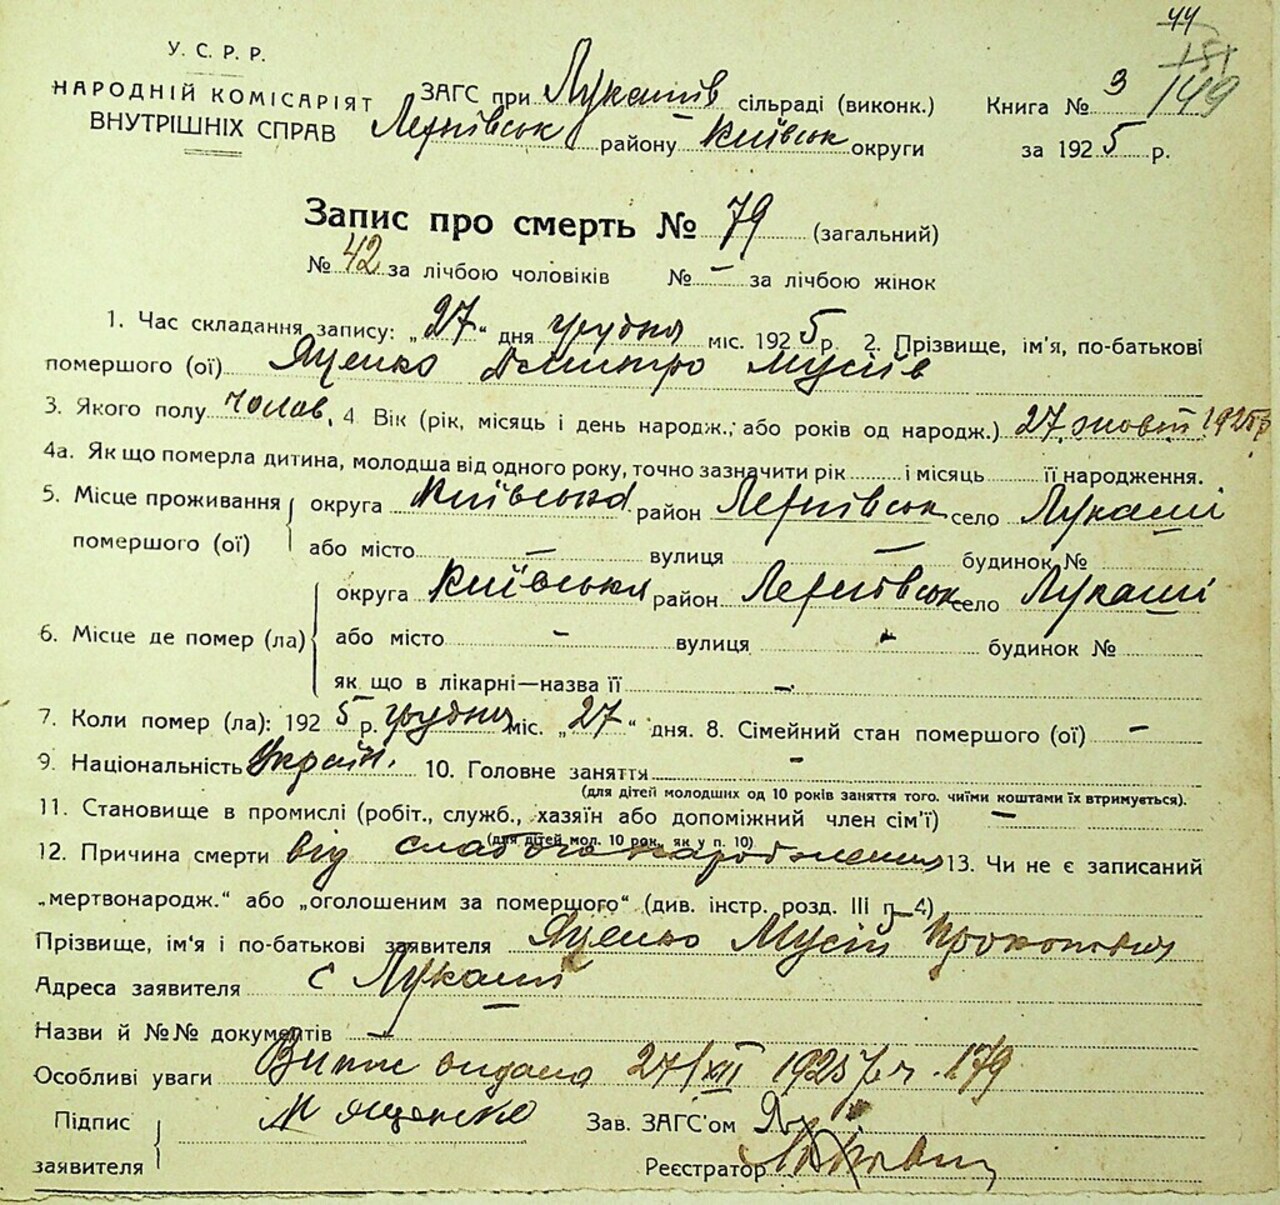 44
151
149
У. С. Р. Р.
НАРОДНІЙ КОМІСАРІЯТ
ВНУТРІШНІХ СПРАВ
ЗАГС при Лукашів сільраді (виконк.)
Книга № 3
району Київськ округи
за 1925 р.
Запис про смерть № 79 (загальний)
№ 42 за лічбою чоловіків № – за лічбою жінок
1. Час складання запису: „27“ дня грудня міс. 1925 р. 2. Прізвище, ім'я, по-батькові
помершого (ої) Яценко Дмитро Мусіїв
3. Якого полу чолов. 4 Вік (рік, місяць і день народж.; або років од народж.) 27 жовт 1925 р
4а. Як що померла дитина, молодша від одного року, точно зазначити рік і місяць її народження.
5. Місце проживання помершого (ої)
округа Київська район село Лукаші
або місто – вулиця – будинок №
6. Місце де помер (ла)
округа Київська район село Лукаші
або місто – вулиця – будинок №
як що в лікарні—назва її –
7. Коли помер (ла): 1925 р. грудня міс. „27“ дня. 8. Сімейний стан помершого (ої) –
9. Національність Україн. 10. Головне заняття –
(для дітей молодших од 10 років заняття того. чиїми коштами їх втримується).
11. Становище в промислі (робіт., служб., хазяїн або допоміжний член сім'ї) –
(для дітей мол. 10 рок., як у п. 10)
12. Причина смерти від слабого народження 13. Чи не є записаний
„мертвонародж.“ або „оголошеним за помершого“ (див. інстр. розд. III п. 4) –
Прізвище, ім'я і по-батькові заявителя Яценко Мусій Прокопович
Адреса заявителя с Лукаші
Назви й №№ документів –
Особливі уваги Випис видана 27/XII 1925 р. ч. 179
Підпис заявителя М Яценко
Зав. ЗАГС'ом
Реєстратор